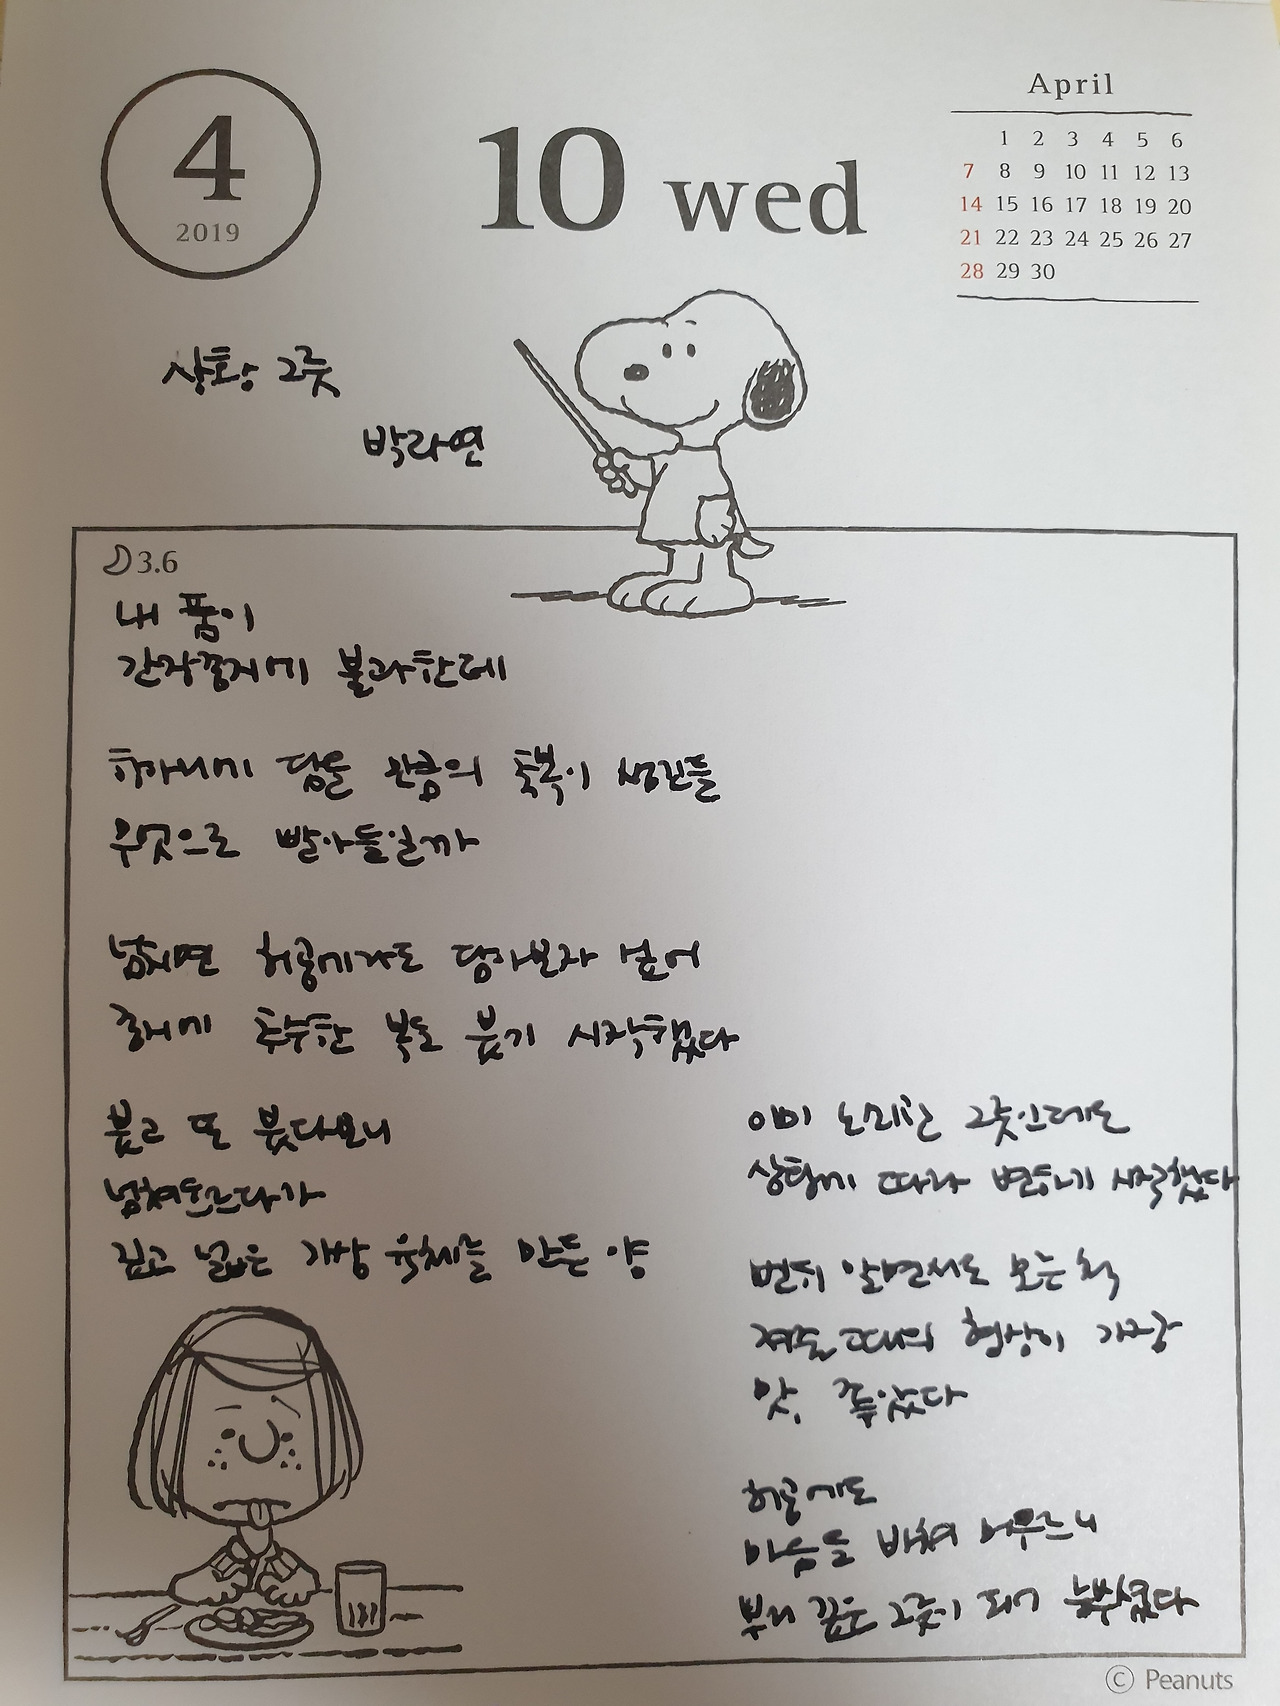 4
2019
10 wed
April
1 2 3 4 5 6
7 8 9 10 11 12 13
14 15 16 17 18 19 20
21 22 23 24 25 26 27
28 29 30
상황 그릇
박라연
3.6
내 품이
간장종지에 불과한데
항아리에 담을 만큼의 축복이 생긴들
무엇으로 빨아들일까
넘치면 허공에라도 담아보자 싶어
종지에 추수한 복을 붓기 시작했다
붓고 또 붓다보니
넘쳐흐르다가
깊고 넓은 가상 육체를 만든 양
이미 노쇠한 그릇인데도
상황에 따라 변하기 시작했다
뻔히 알면서도 모른 척
져줄 때의 형상이 가장
맛, 좋았다
허공에도
마음을 바쳐 머무르니
뿌리 깊은 그릇이 되어 눈부셨다
© Peanuts